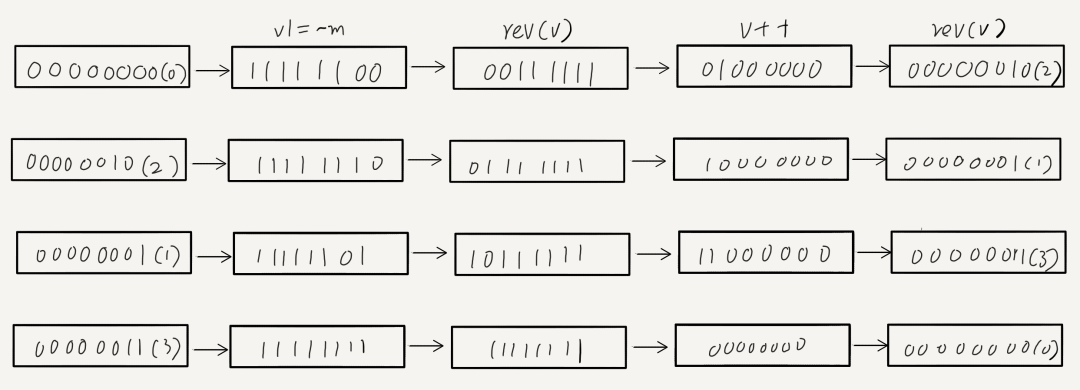 v|=~m rev(v) v++ rev(v)
00000000(0) 11111100 00111111 01000000 00000010(2)
00000010(2) 11111110 01111111 10000000 00000001(1)
00000001(1) 11111101 10111111 11000000 00000011(3)
00000011(3) 11111111 11111111 00000000 00000000(0)